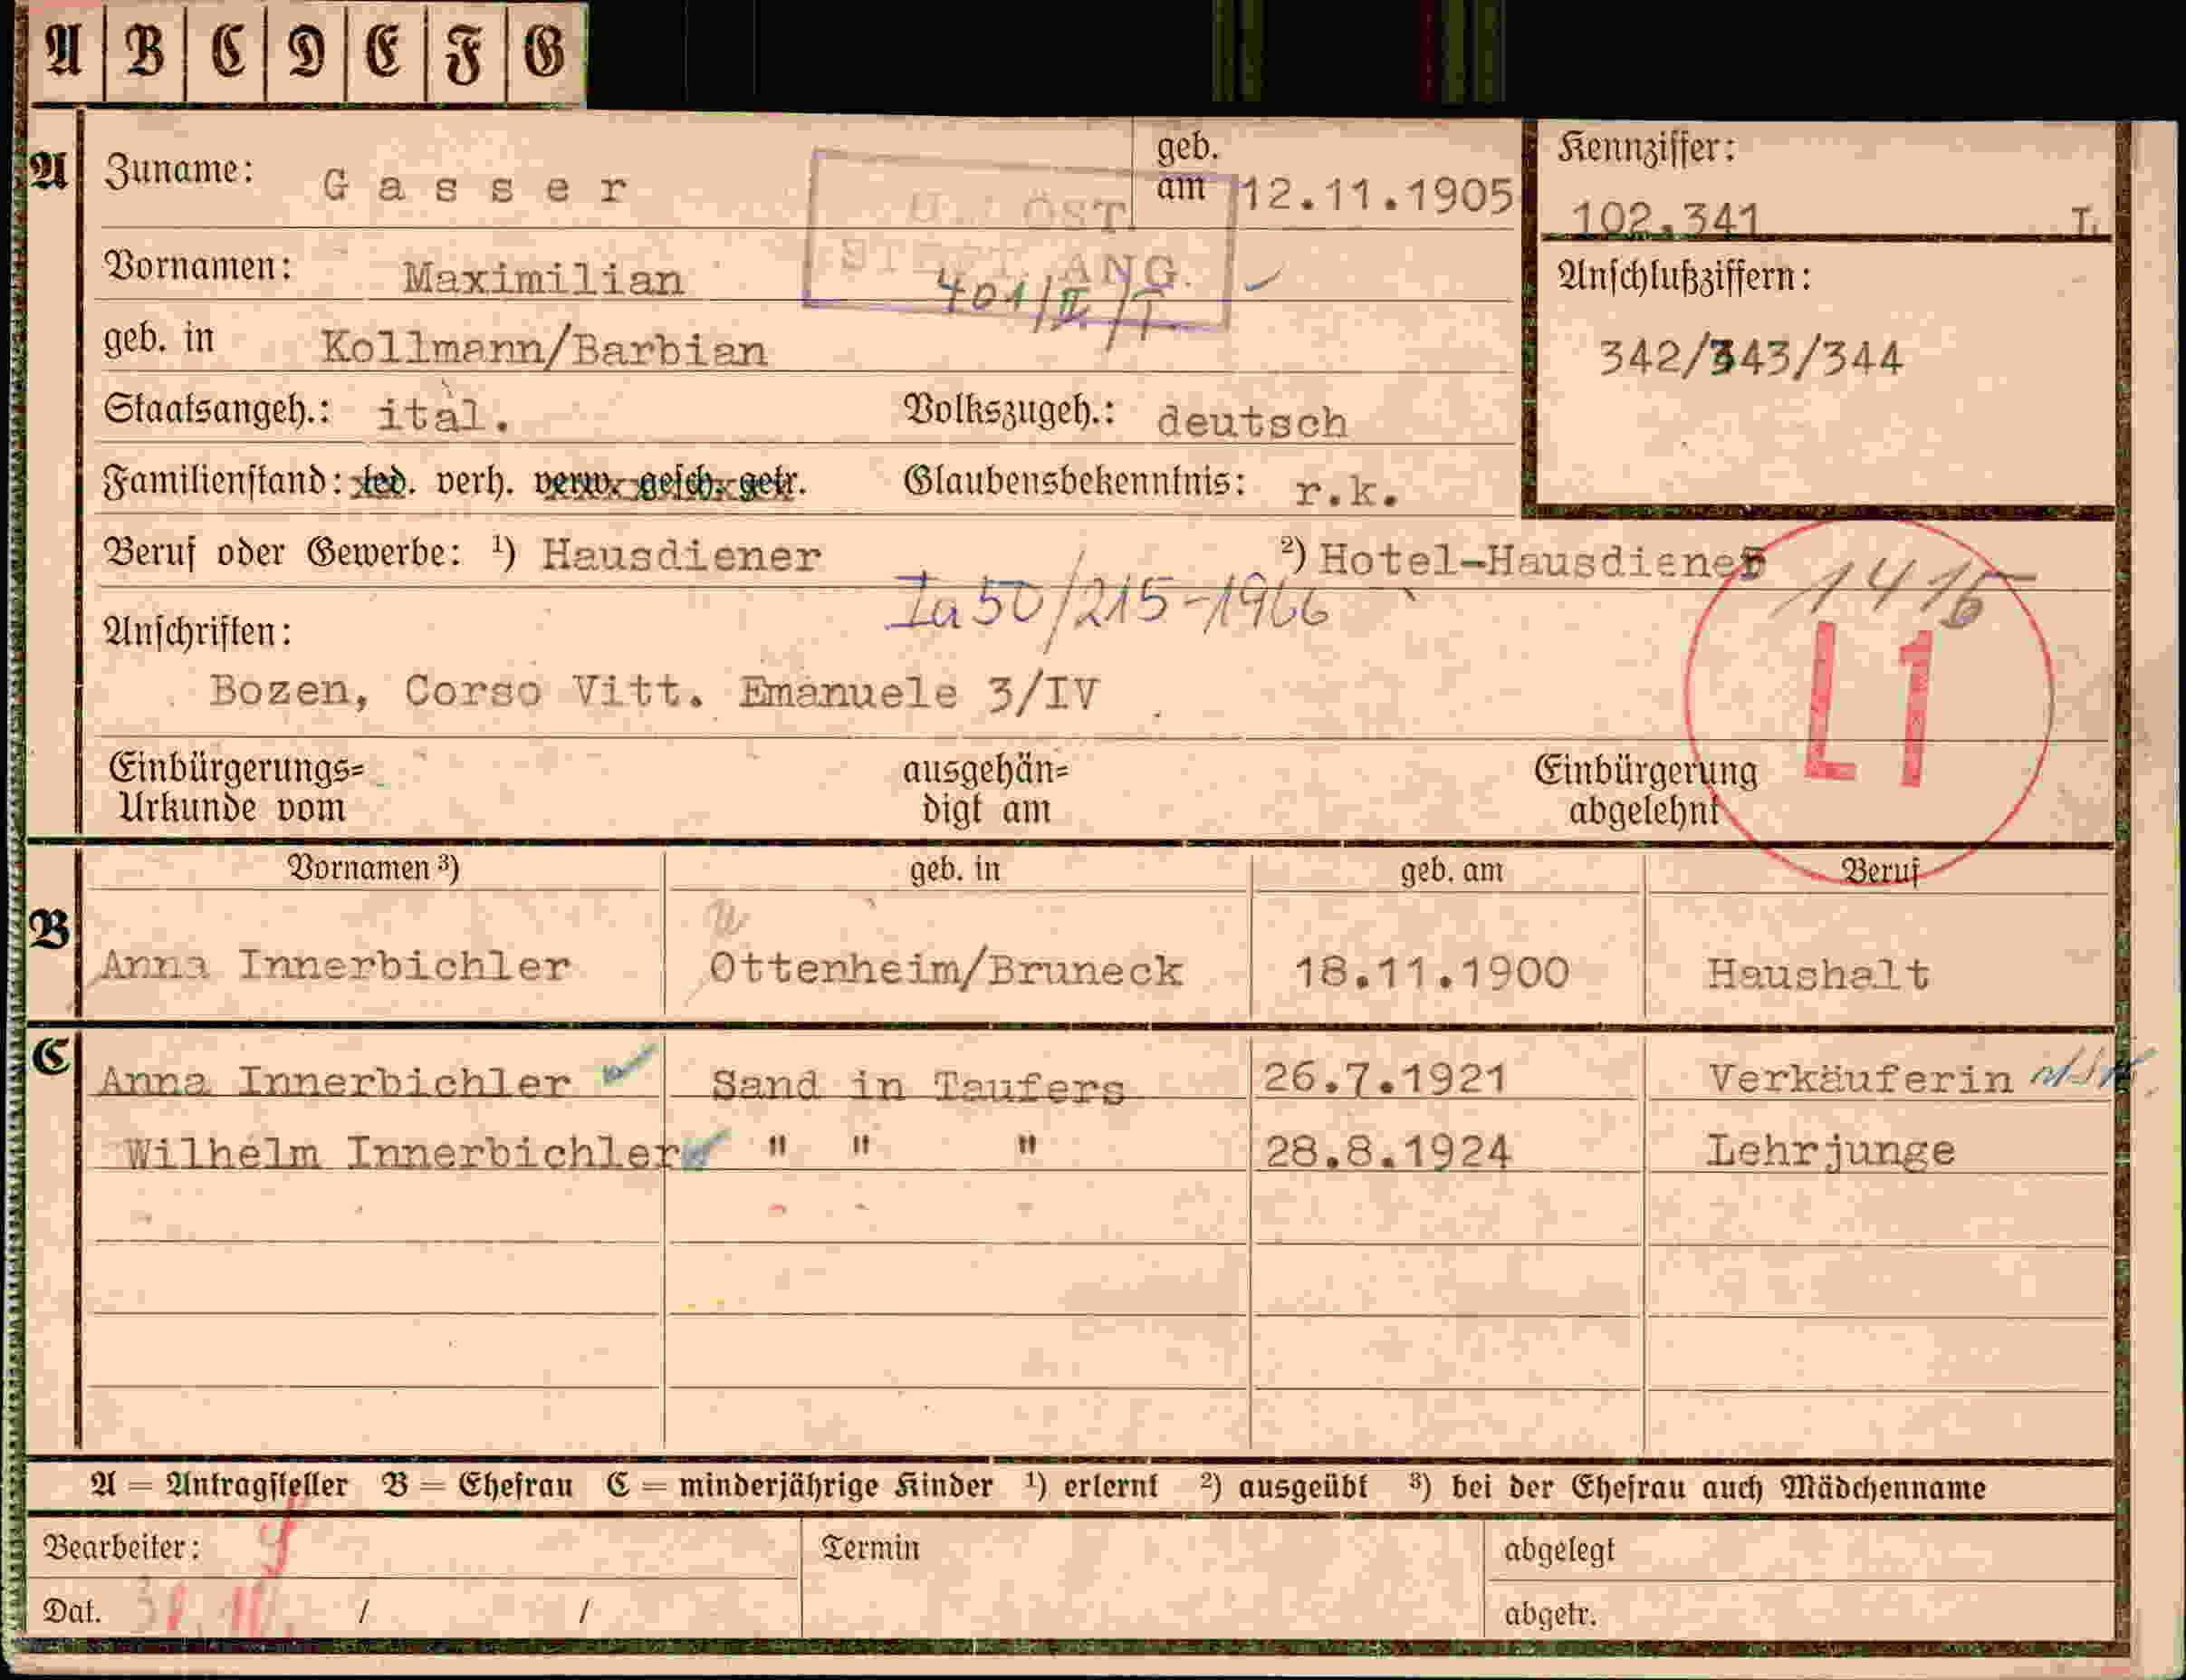 A B C D E F G
A Zuname: Gasser geb. am 12.11.1905
Kennziffer: 102.341 T.
ÖST.
ANG.
Vornamen: Maximilian 401/II/T
Anschlußziffern:
342/343/344
geb. in Kollmann/Barbian
Staatsangeh.: ital. Volkszugeh.: deutsch
Familienstand: led. verh. verw. gesch. getr. Glaubensbekenntnis: r.k.
Beruf oder Gewerbe: ¹) Hausdiener ²) Hotel-Hausdiener
Ia 50/215-1966
Anschriften:
Bozen, Corso Vitt. Emanuele 3/IV
L1
Einbürgerungs= Urkunde vom ausgehän= digt am Einbürgerung abgelehnt
Vornamen ³) geb. in geb. am Beruf
B Anna Innerbichler Ottenheim/Bruneck 18.11.1900 Haushalt
C Anna Innerbichler Sand in Taufers 26.7.1921 Verkäuferin
Wilhelm Innerbichler " " " 28.8.1924 Lehrjunge
A = Antragsteller B = Ehefrau C = minderjährige Kinder ¹) erlernt ²) ausgeübt ³) bei der Ehefrau auch Mädchenname
Bearbeiter: Termin abgelegt
Dat. / / abgetr.